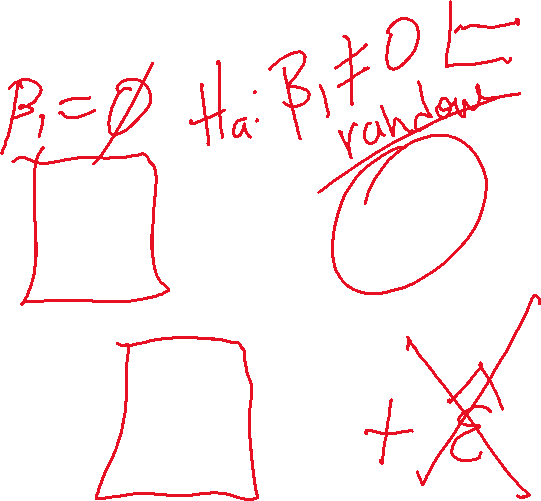 β₁ = 0 Ha: β₁ ≠ 0
random
+ ε̂